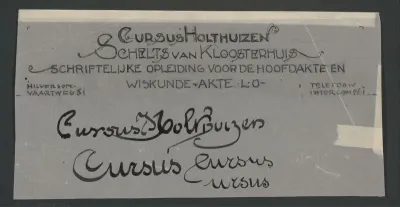 CURSUS HOLTHUIZEN
SCHELTS VAN KLOOSTERHUIS
SCHRIFTELIJKE OPLEIDING VOOR DE HOOFDAKTE EN
WISKUNDE-AKTE L.O-
HILVERSUM
VAARTWEG 81
TELEFOON
INTERCOMM
Cursus Holthuizen
Cursus Cursus
ursus